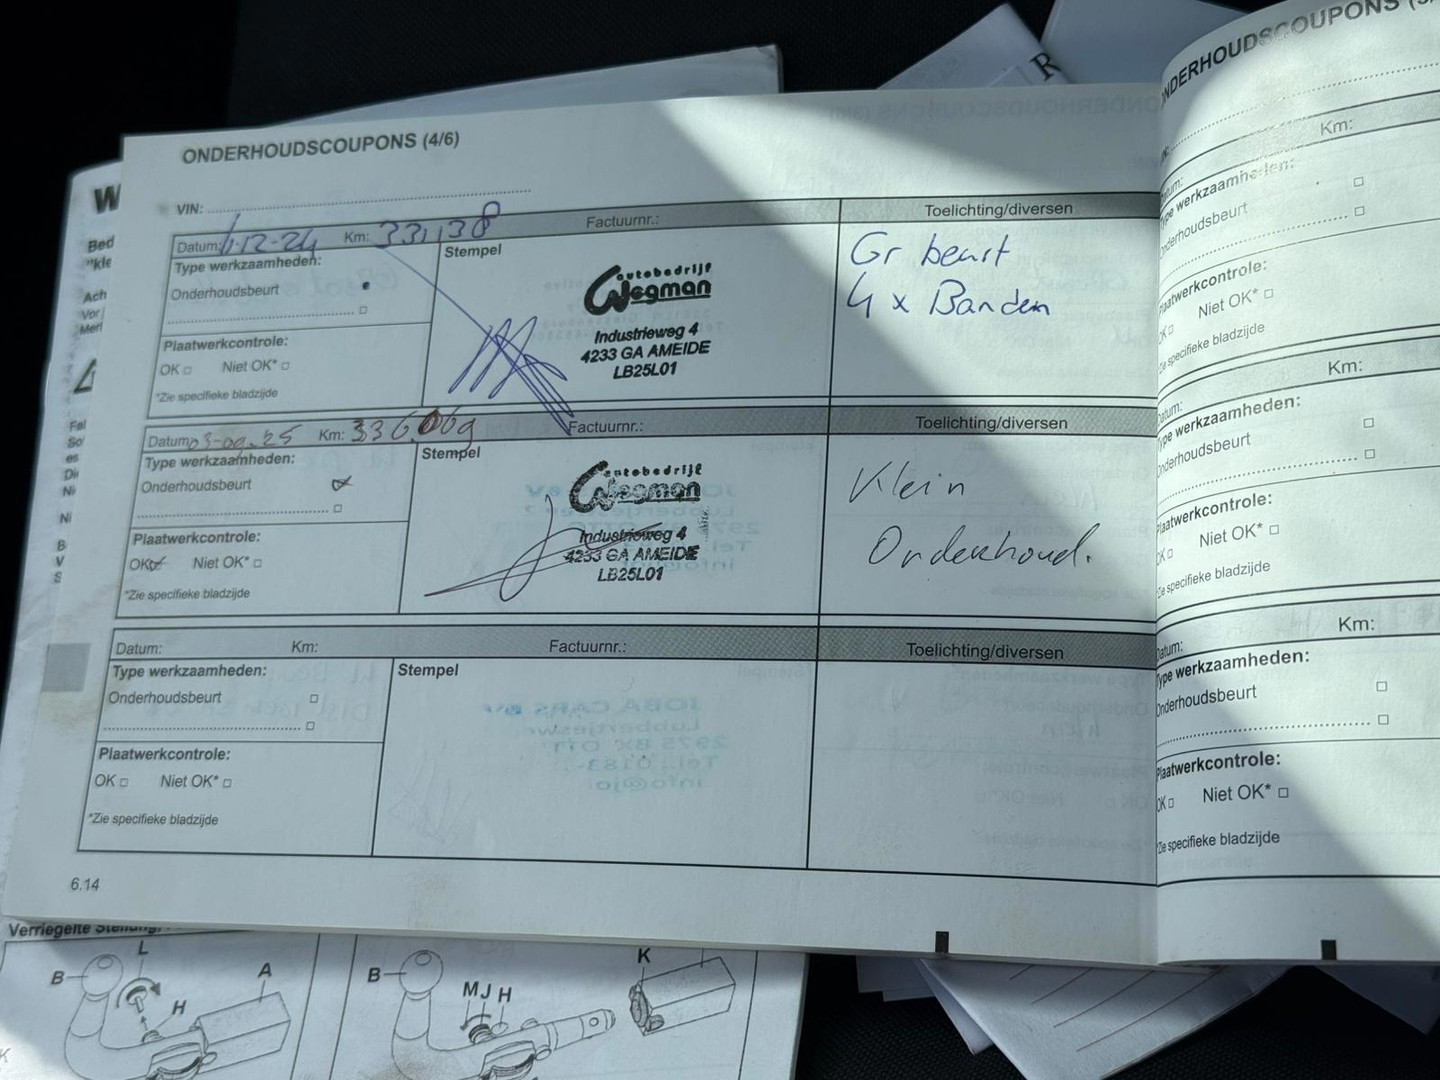 ONDERHOUDSCOUPONS (4/6)
VIN:
Datum: 4-12-24 Km: 331,138 Factuurnr.: Toelichting/diversen
Type werkzaamheden:
Onderhoudsbeurt
Plaatwerkcontrole:
OK Niet OK*
*Zie specifieke bladzijde
Stempel
autobedrijf
Wegman
Industrieweg 4
4233 GA AMEIDE
LB25L01
Gr beurt
4 x Banden
Datum: 03-09-25 Km: 336.069 Factuurnr.: Toelichting/diversen
Type werkzaamheden:
Onderhoudsbeurt
Plaatwerkcontrole:
OK Niet OK*
*Zie specifieke bladzijde
Stempel
autobedrijf
Wegman
Industrieweg 4
4233 GA AMEIDE
LB25L01
Klein
Onderhoud.
Datum: Km: Factuurnr.: Toelichting/diversen
Type werkzaamheden:
Onderhoudsbeurt
Plaatwerkcontrole:
OK Niet OK*
*Zie specifieke bladzijde
Stempel
6.14
ONDERHOUDSCOUPONS
Km:
Type werkzaamheden:
Onderhoudsbeurt
Plaatwerkcontrole:
OK Niet OK*
*Zie specifieke bladzijde
Km:
Datum:
Type werkzaamheden:
Onderhoudsbeurt
Plaatwerkcontrole:
OK Niet OK*
*Zie specifieke bladzijde
Km:
Datum:
Type werkzaamheden:
Onderhoudsbeurt
Plaatwerkcontrole:
OK Niet OK*
*Zie specifieke bladzijde
R
W
Verriegelte Stellung
L
B
A
H
B
M J H
K